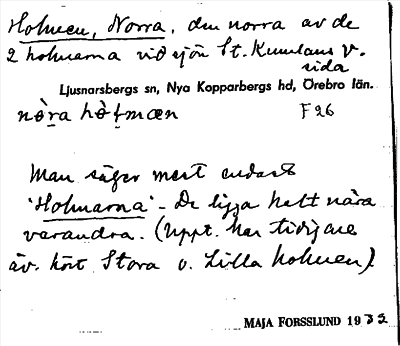 Holmen, Norra, den norra av de
2 holmarna vid sjön St. Kumlans v.
sida
Ljusnarsbergs sn, Nya Kopparbergs hd, Örebro län.
nò̀ra hò̀ḷmæn F26
Man säger mest endast
'Holmarna'. De ligga helt nära
varandra. (Uppt. har tidigare
äv. hört Stora o. Lilla holmen).
MAJA FORSSLUND 1932